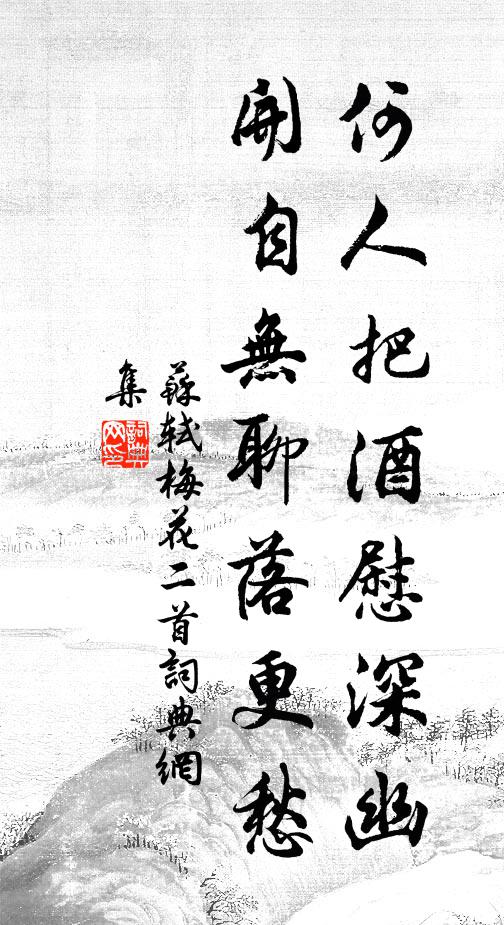 何人把酒慰深幽
開自無聊落更愁
蘇軾梅花二首詞典網
集